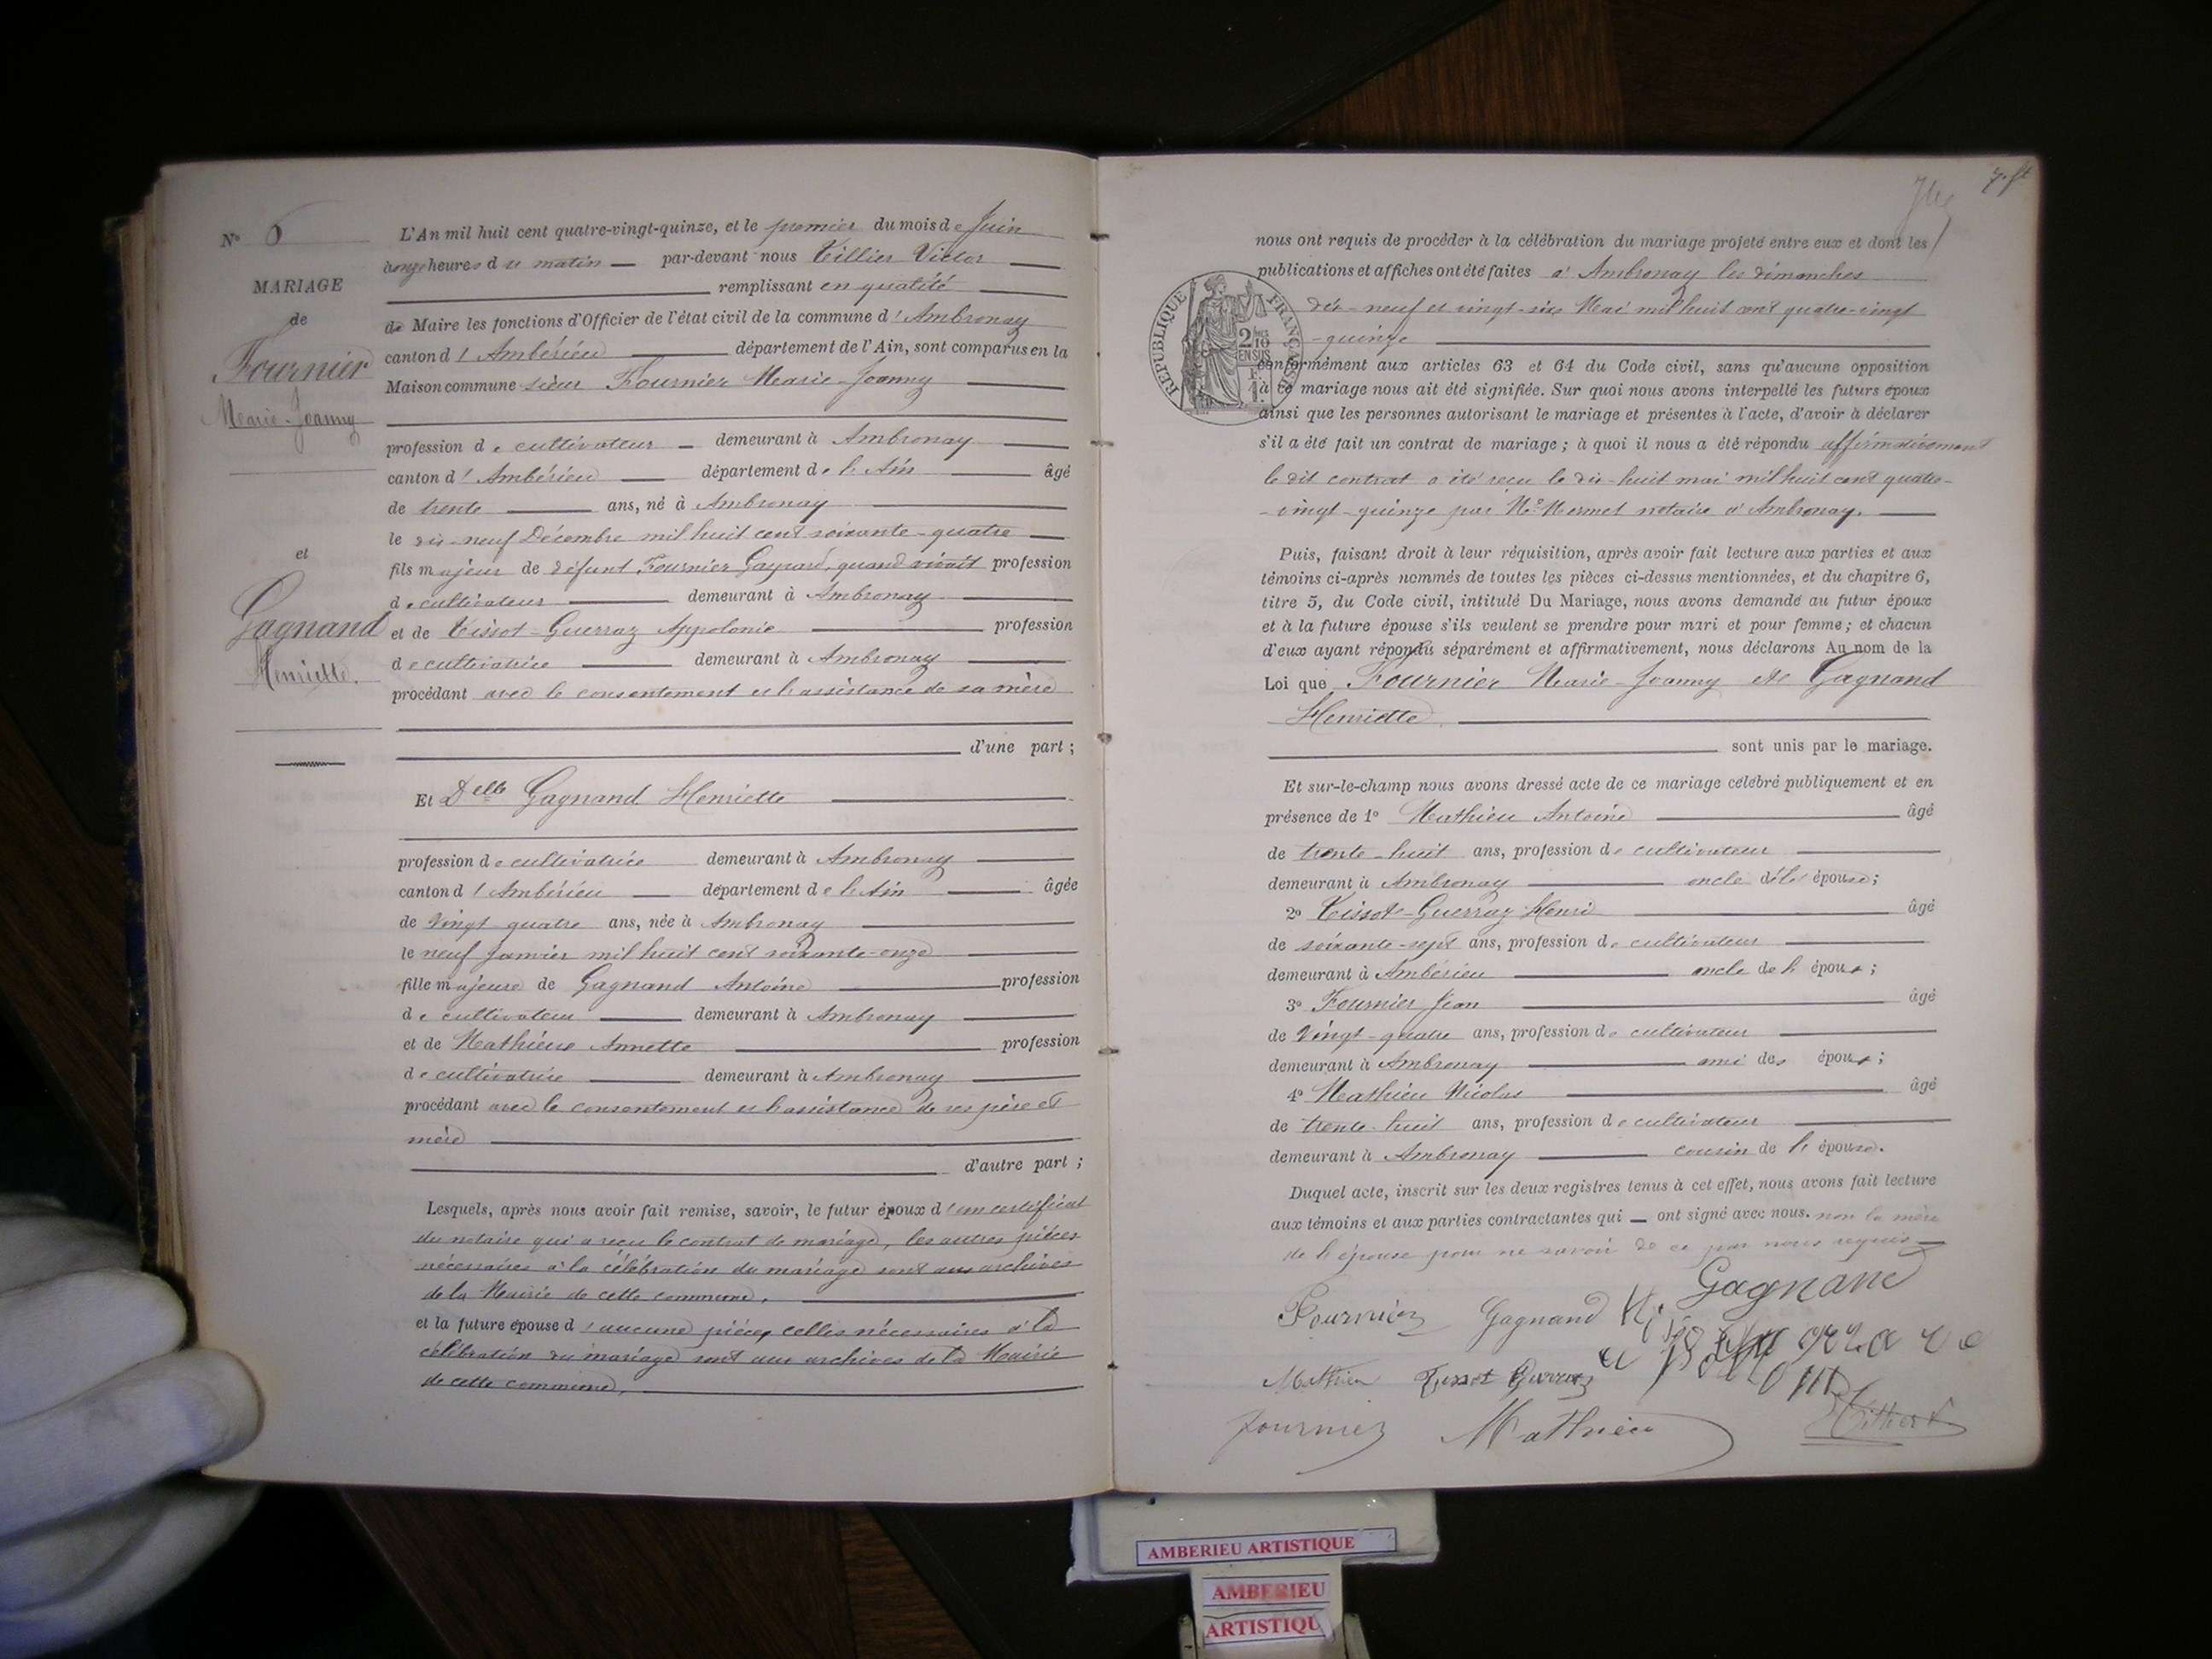 N° 6
MARIAGE
de
Fournier
Marie-Joanny
et
Gagnand
Henriette.
L'An mil huit cent quatre-vingt-quinze, et le premier du mois de Juin
à onze heures du matin par-devant nous Tillier Victor
remplissant en qualité
de Maire les fonctions d'Officier de l'état civil de la commune d'Ambronay
canton d'Ambérieu département de l'Ain, sont comparus en la
Maison commune sieur Fournier Marie-Joanny
profession de cultivateur demeurant à Ambronay
canton d'Ambérieu département de l'Ain âgé
de trente ans, né à Ambronay
le dix-neuf Décembre mil huit cent soixante-quatre
fils majeur de défunt Fournier Gaspard, quand vivait profession
de cultivateur demeurant à Ambronay
et de Tissot-Guerraz Appolonie profession
de cultivatrice demeurant à Ambronay
procédant avec le consentement et l'assistance de sa mère
d'une part ;
Et Delle Gagnand Henriette
profession de cultivatrice demeurant à Ambronay
canton d'Ambérieu département de l'Ain âgée
de vingt-quatre ans, née à Ambronay
le neuf Janvier mil huit cent soixante-onze
fille majeure de Gagnand Antoine profession
de cultivateur demeurant à Ambronay
et de Mathieu Annette profession
de cultivatrice demeurant à Ambronay
procédant avec le consentement et l'assistance de ses père et
mère
d'autre part ;
Lesquels, après nous avoir fait remise, savoir, le futur époux d'un certificat
du notaire qui a reçu le contrat de mariage, les autres pièces
nécessaires à la célébration du mariage sont aux archives
de la Mairie de cette commune.
et la future épouse d'aucune pièce, celles nécessaires à la
célébration du mariage sont aux archives de la Mairie
de cette commune.
nous ont requis de procéder à la célébration du mariage projeté entre eux et dont les
publications et affiches ont été faites à Ambronay les dimanches
dix-neuf et vingt-six Mai mil huit cent quatre-vingt
-quinze
RÉPUBLIQUE FRANÇAISE
2/10
EN SUS
conformément aux articles 63 et 64 du Code civil, sans qu'aucune opposition
à ce mariage nous ait été signifiée. Sur quoi nous avons interpellé les futurs époux
ainsi que les personnes autorisant le mariage et présentes à l'acte, d'avoir à déclarer
s'il a été fait un contrat de mariage ; à quoi il nous a été répondu affirmativement
le dit contrat a été reçu le dix-huit mai mil huit cent quatre-
-vingt-quinze par Me Mermet notaire à Ambronay.
Puis, faisant droit à leur réquisition, après avoir fait lecture aux parties et aux
témoins ci-après nommés de toutes les pièces ci-dessus mentionnées, et du chapitre 6,
titre 5, du Code civil, intitulé Du Mariage, nous avons demandé au futur époux
et à la future épouse s'ils veulent se prendre pour mari et pour femme ; et chacun
d'eux ayant répondu séparément et affirmativement, nous déclarons Au nom de la
Loi que Fournier Marie-Joanny et Gagnand
Henriette
sont unis par le mariage.
Et sur-le-champ nous avons dressé acte de ce mariage célébré publiquement et en
présence de 1° Mathieu Antoine âgé
de trente-huit ans, profession de cultivateur
demeurant à Ambronay oncle de l'épouse ;
2° Tissot-Guerraz Henri âgé
de soixante-sept ans, profession de cultivateur
demeurant à Ambérieu oncle de l'époux ;
3° Fournier Jean âgé
de vingt-quatre ans, profession de cultivateur
demeurant à Ambronay ami des époux ;
4° Mathieu Nicolas âgé
de trente-huit ans, profession de cultivateur
demeurant à Ambronay cousin de l'épouse.
Duquel acte, inscrit sur les deux registres tenus à cet effet, nous avons fait lecture
aux témoins et aux parties contractantes qui ont signé avec nous. non la mère
de l'épouse pour ne savoir de ce par nous requis
Fournier Gagnand H. Gagnand
Mathieu Tissot Guerraz
Fournier Mathieu
AMBERIEU ARTISTIQUE
AMBERIEU
ARTISTIQU